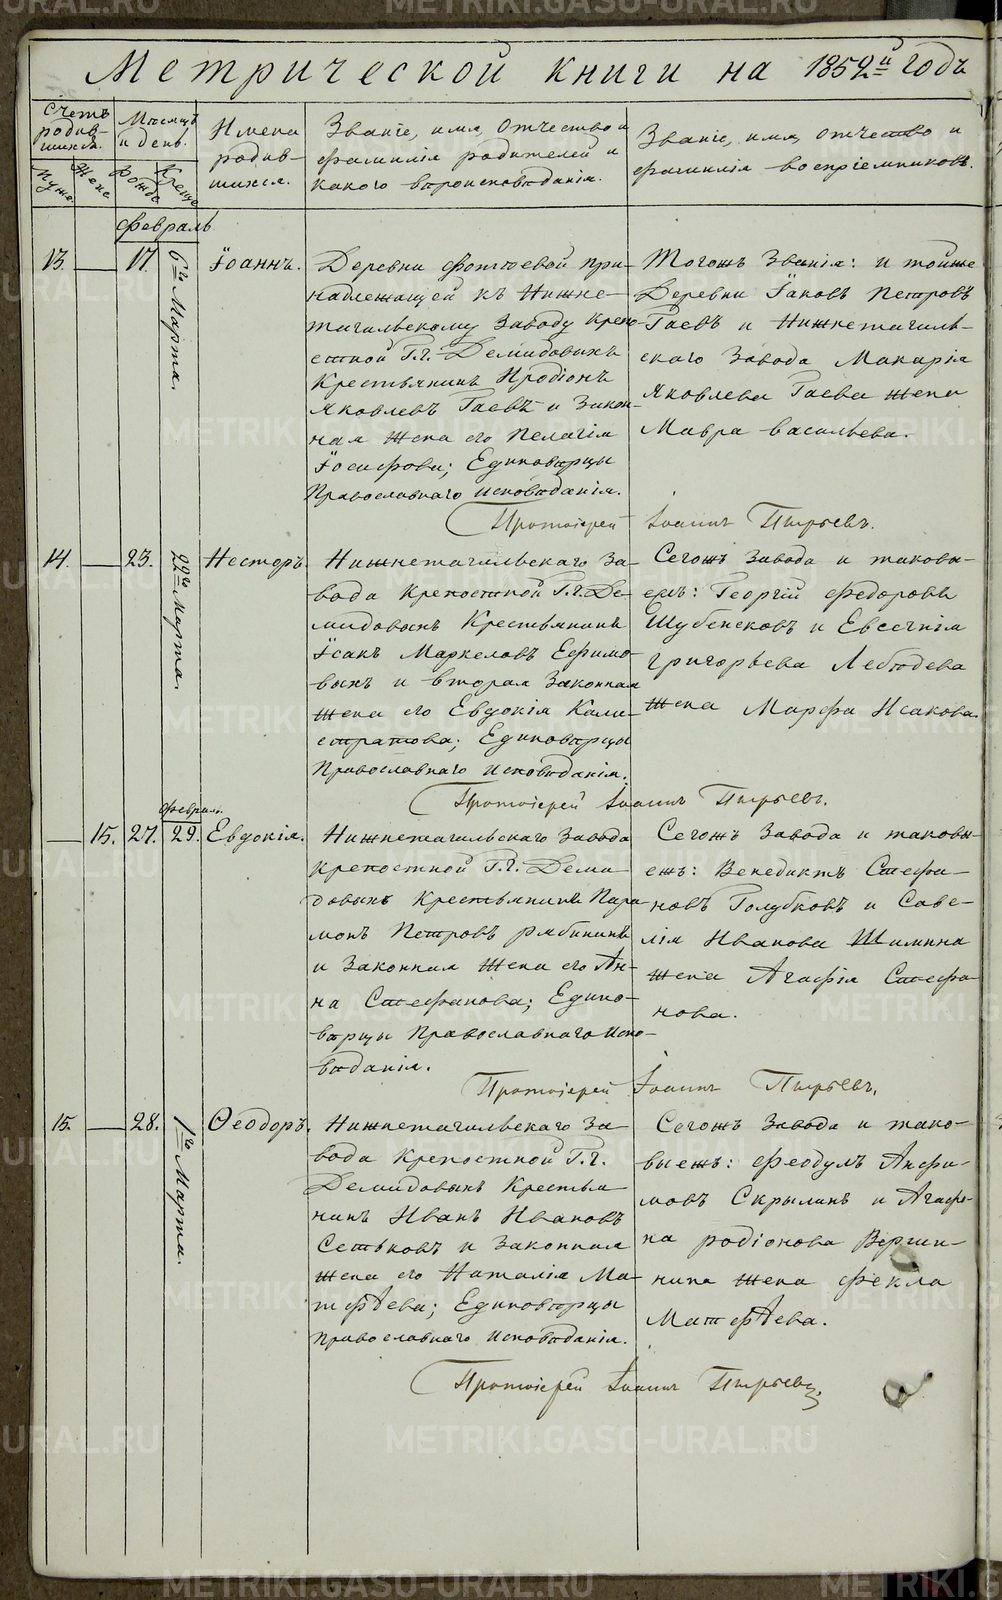 Метрической книги на 1852й годъ
Счетъ родив-шихся.
Муже Жене
Месяцъ и день.
Рожде Креще
Имена родив-шихся.
Званіе, имя, отчество и фамилія родителей и какого вѣроисповѣданія.
Званіе, имя, отчество и фамилія воспріемниковъ.
февраль
13. — 17. 6го Марта.
Іоаннъ.
Деревни фотѣевой при-
надлежащей къ Нижне-
тагильскому Заводу Крѣпо-
стной Г.г. Демидовыхъ
Крестьянинъ Иродіонъ
Яковлевъ Гаевъ и Закон-
ная Жена его Пелагія
Іосифова; Единовѣрцы
Православнаго исповѣданія.
Тогожъ Званія: и тойже
Деревни Іаковъ Петровъ
Гаевъ и Нижнетагиль-
скаго Завода Макарія
Яковлева Гаева жена
Мавра васильева.
Протоіерей Іоаннъ Пырьевъ.
14. — 23. 22го Марта.
Несторъ.
Нижнетагильскаго За-
вода Крепостной Г.г. Де-
мидовыхъ Крестьянинъ
Ісакъ Маркеловъ Ефимо-
выхъ и вторая Законная
Жена его Евдокія Кали-
стратова; Единовѣрцы
Православнаго Исповѣданія.
Сегожъ Завода и таковы-
ежъ: Георгій федоровъ
Шубенковъ и Евсегнія
григорьева Лебедева
Жена Марфа Исакова.
Протоіерей Іоаннъ Пырьевъ.
феврал.
— 15. 27. 29. Евдокія.
Нижнетагильскаго Завода
Крепостной Г.г. Деми-
довыхъ Крестьянинъ Пара-
монъ Петровъ рябининъ
и Законная Жена его Ан-
на Стефанова; Едино-
вѣрцы Православнаго Испо-
вѣданія.
Сегожъ Завода и таковы-
ежъ: Венедиктъ Стефа-
новъ Голубковъ и Саве-
лія Иванова Шимина
жена Агафія Стефа-
нова.
Протоіерей Іоаннъ Пырьевъ.
15. — 28. 1го Марта.
Ѳеодоръ.
Нижнетагильскаго За-
вода Крепостной Г.г.
Демидовыхъ Крестья-
нинъ Иванъ Ивановъ
Сетьковъ и Законная
Жена его Наталія Ма-
тфѣева; Единовѣрцы
Православнаго Исповѣданія.
Сегожъ Завода и тако-
выежъ: феодулъ Анфи-
мовъ Скрылинъ и Агафо-
на родіонова Верши-
нина жена фекла
Матфѣева.
Протоіерей Іоаннъ Пырьевъ.
METRIKI.GASO-URAL.RU